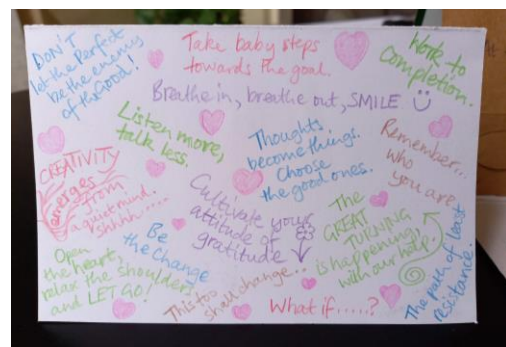 DON'T
let the Perfect
be the enemy
of the Good!
Take baby steps
towards the goal.
Work to
Completion.
Breathe in, breathe out, SMILE
Listen more,
talk less.
Thoughts
become things.
Choose
the good ones.
Remember...
who
you are.
CREATIVITY
emerges
from
a quiet mind.
shhhh.....
Cultivate your
attitude of
gratitude
The
GREAT
TURNING
is happening,
with our help!
Open
the heart,
relax the shoulders
and LET GO!
Be
the change
This too
shall change...
What if.....?
The path of least
resistance.